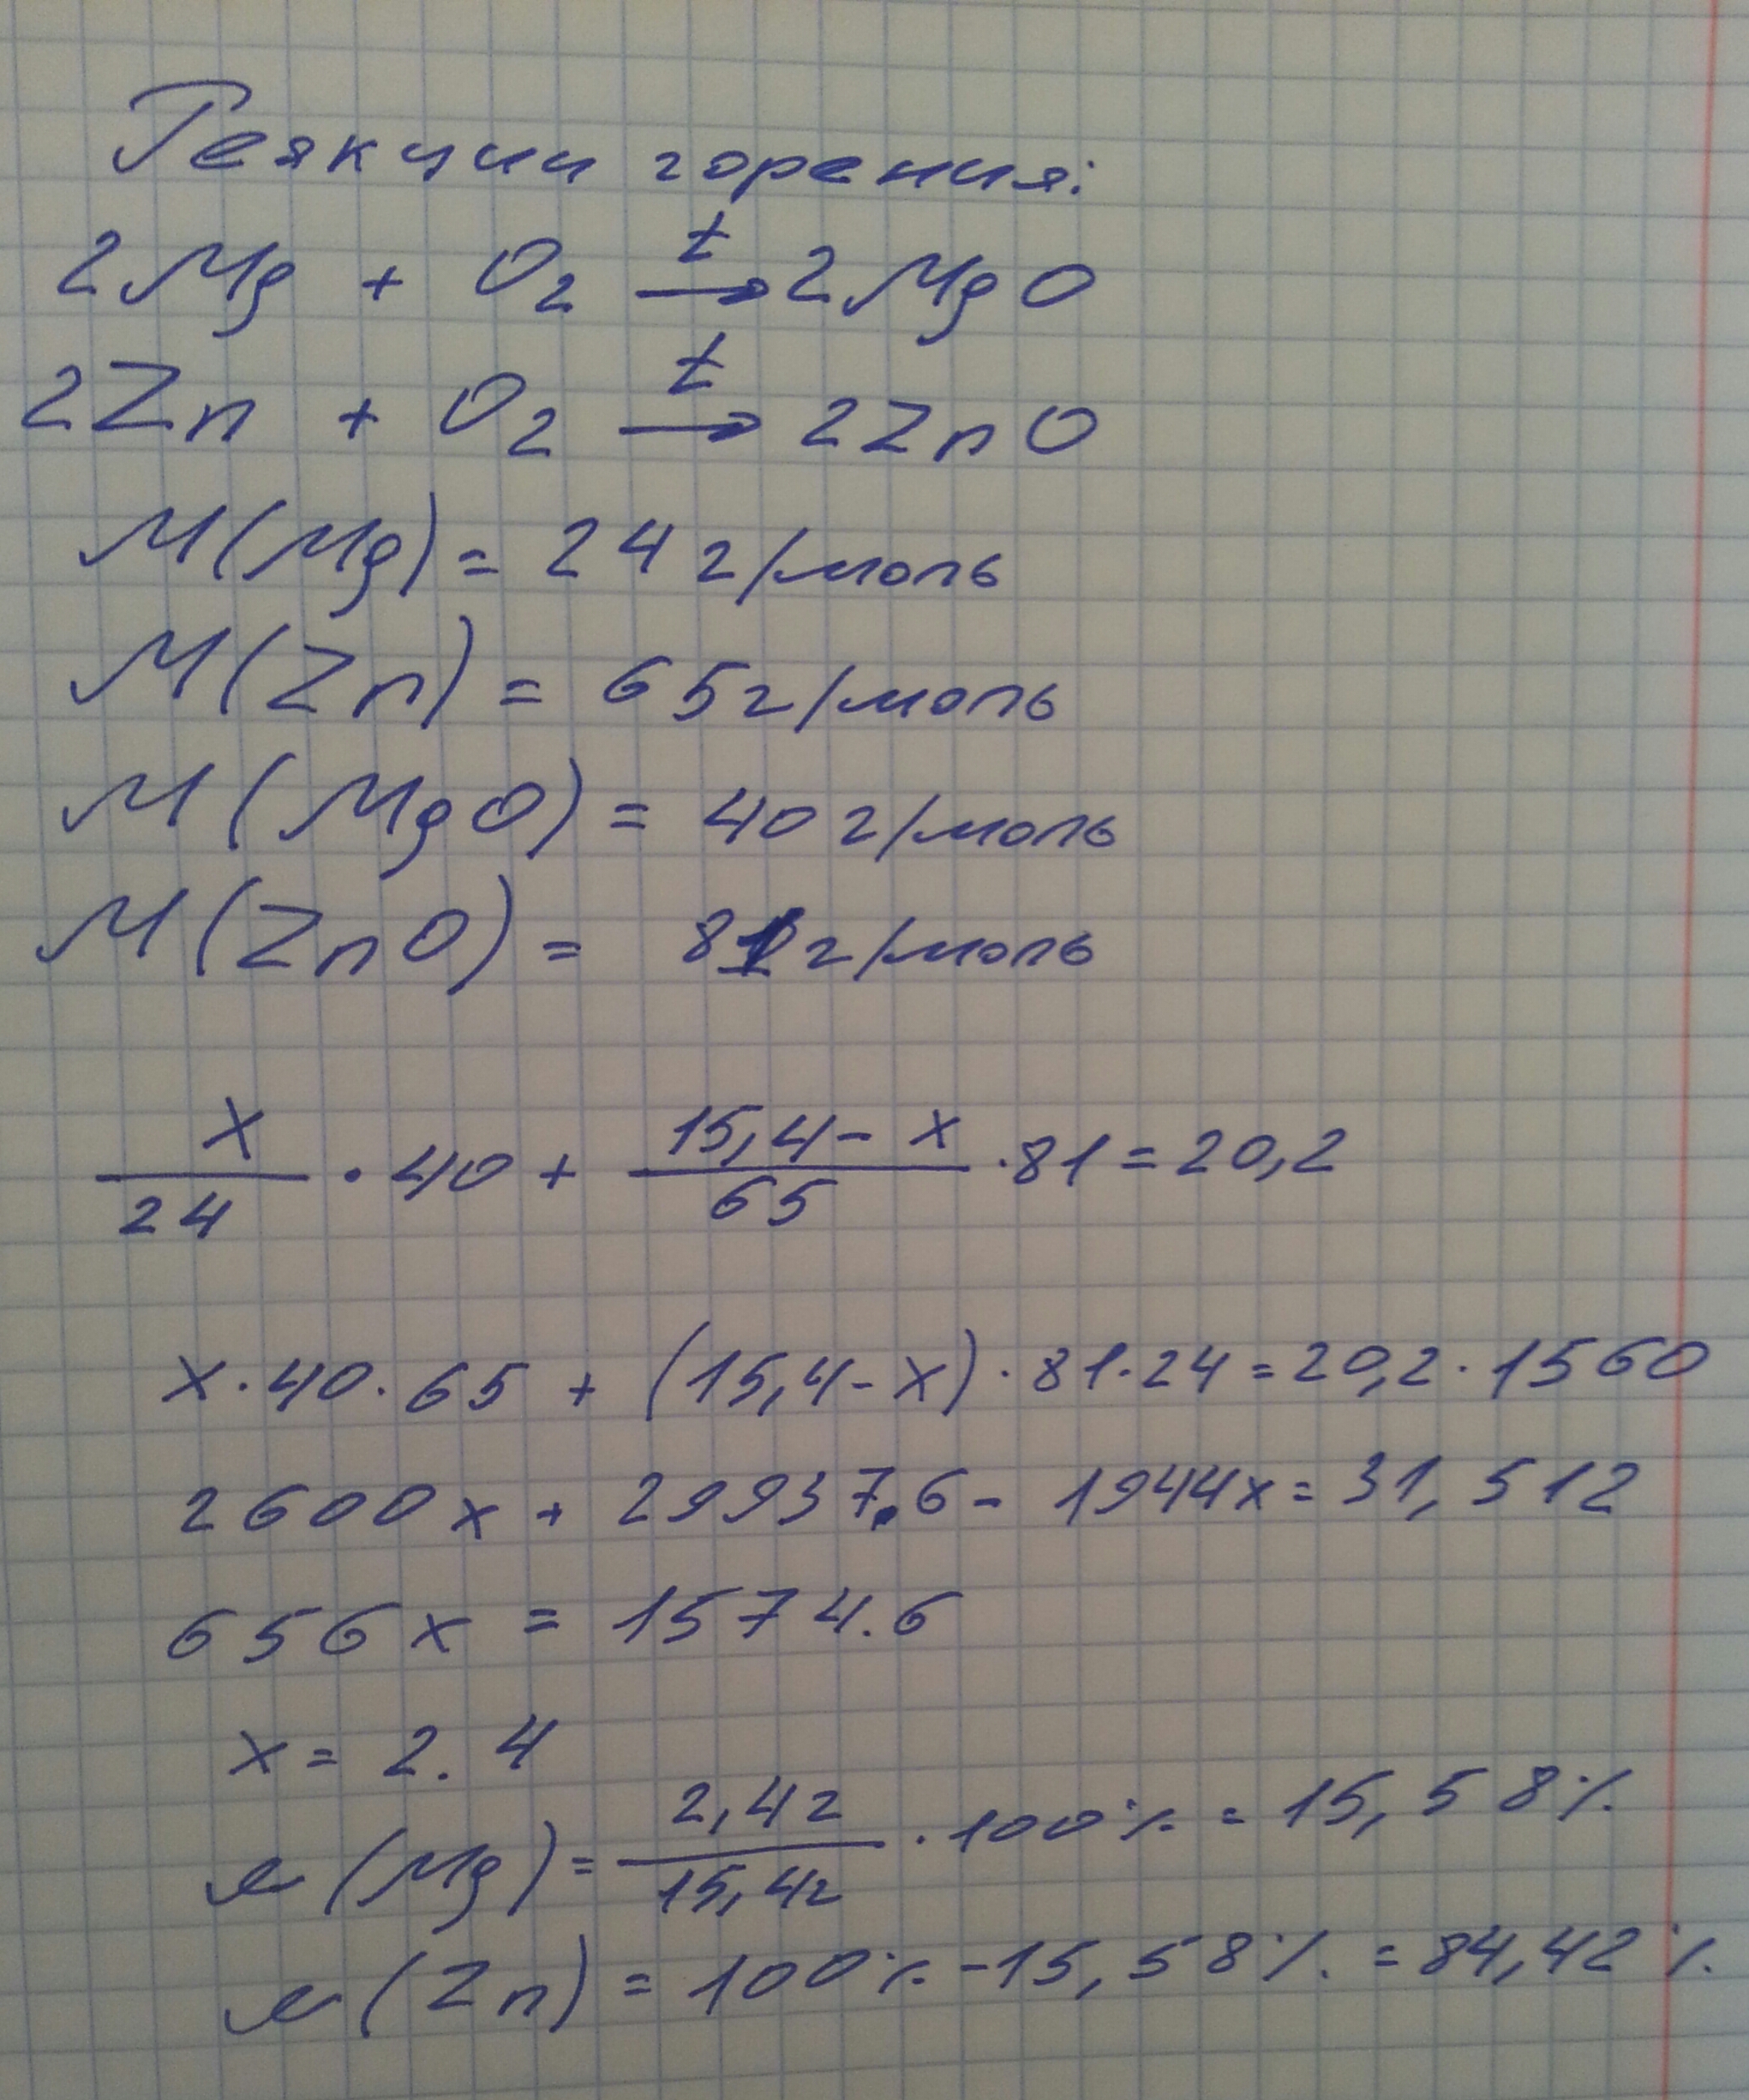 Реякции горения:
2Mg + O₂ →ᵗ 2MgO
2Zn + O₂ →ᵗ 2ZnO
M(Mg) = 24 г/моль
M(Zn) = 65 г/моль
M(MgO) = 40 г/моль
M(ZnO) = 81 г/моль
x/24 · 40 + (15,4 - x)/65 · 81 = 20,2
x · 40 · 65 + (15,4 - x) · 81 · 24 = 20,2 · 1560
2600x + 29937,6 - 1944x = 31,512
656x = 1574.6
x = 2.4
м(Mg) = 2,4г/15,4г · 100% = 15,58%
м(Zn) = 100% - 15,58% = 84,42%